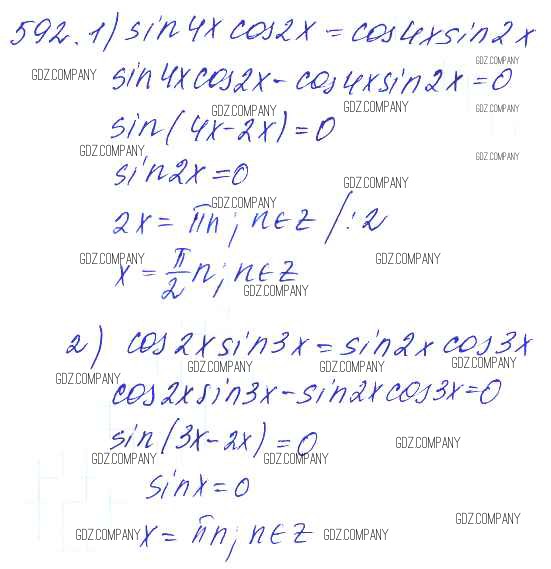 592. 1) sin4x cos2x = cos4x sin2x
GDZ.COMPANY GDZ.COMPANY
sin4x cos2x - cos4x sin2x = 0
GDZ.COMPANY GDZ.COMPANY GDZ.COMPANY
sin(4x-2x) = 0
GDZ.COMPANY GDZ.COMPANY
sin2x = 0
GDZ.COMPANY
GDZ.COMPANY
2x = πn; n∈Z /:2
GDZ.COMPANY GDZ.COMPANY
x = π/2 n; n∈Z
GDZ.COMPANY
2) cos2x sin3x = sin2x cos3x
GDZ.COMPANY GDZ.COMPANY GDZ.COMPANY
GDZ.COMPANY
cos2x sin3x - sin2x cos3x = 0
sin(3x-2x) = 0
GDZ.COMPANY
GDZ.COMPANY GDZ.COMPANY
sinx = 0
GDZ.COMPANY
x = πn; n∈Z
GDZ.COMPANY GDZ.COMPANY